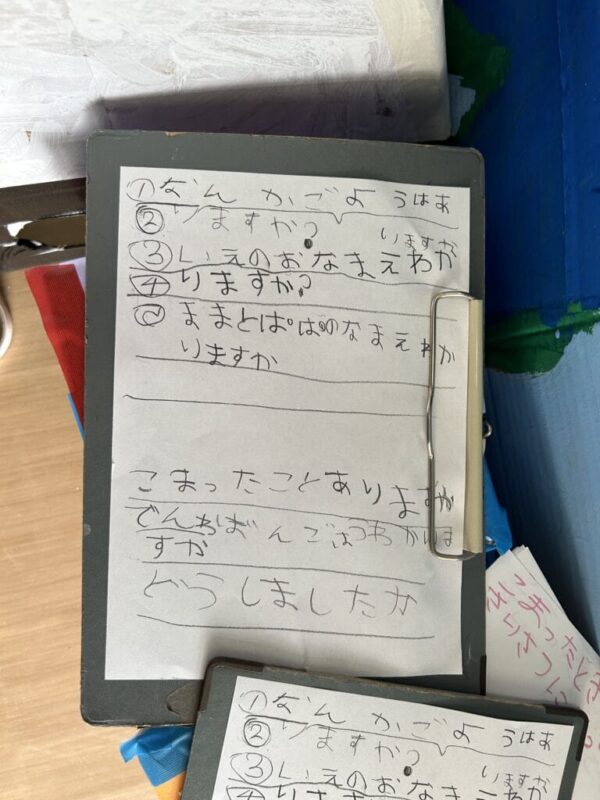 ①なん かごよ うはあ
②りますか?
③いえのおなまえわか
ります か
④りますか?
② ままとぱぱのなまえわか
りますか
こまったことあります か
でんわばんごうわかりま
すか
どうしましたか
こまったとき
①なん かごよ うはあ
②りますか?
③いえのおなまえわか
ります か